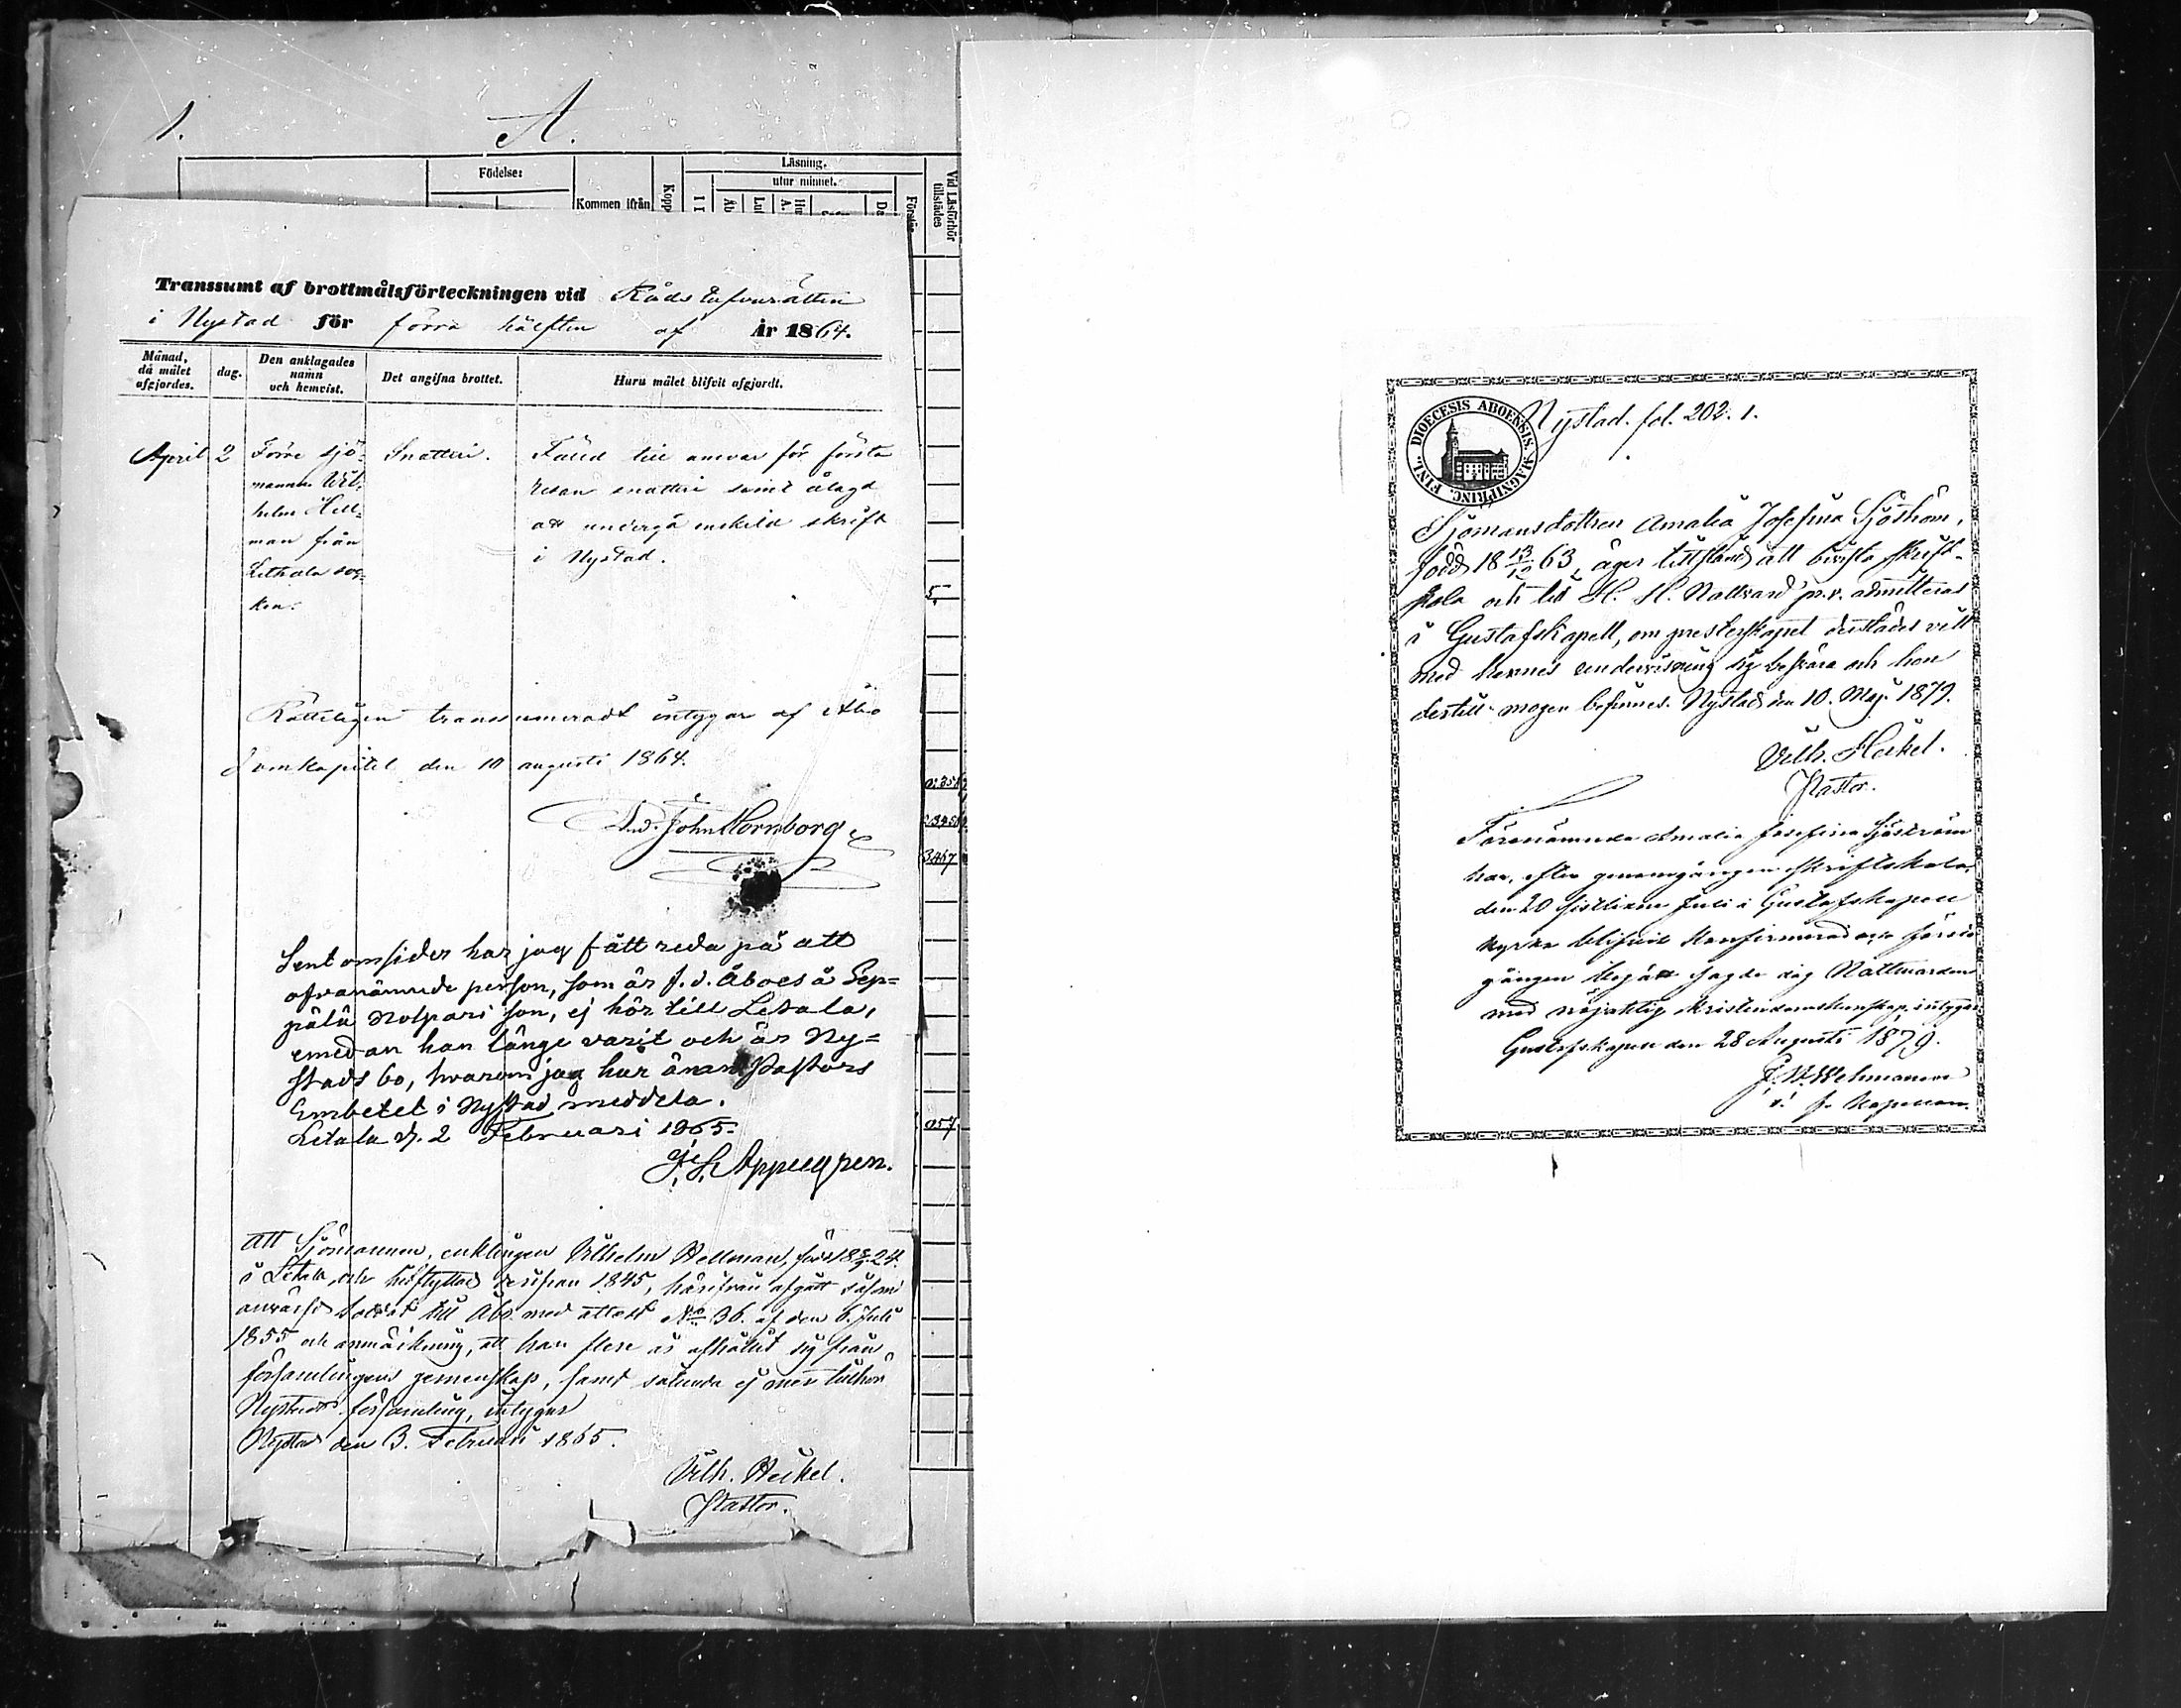 1.
A.
Födelse:
Kommen ifrån
Kopp
Läsning.
utur minnet.
Vid Läsförhör
tillstädes
Transsumt af brottmålsförteckningen vid Rådstufvurätten
i Nystad för förra hälften af År 1864.
Månad,
då målet
afgjordes.
dag.
Den anklagades
namn
och hemvist.
Det angifna brottet.
Huru målet blifvit afgjordt.
April 2
Förre sjö-
mannen Wil-
helm Hell-
man från
Lethala soc-
ken.
Snatteri.
Fälld till answar för första
resan snatteri samt ålagd
att undergå enskild skrift
i Nystad.
5
Rätteligen transsumeradt intygar af Åbo
Domkapitel den 10 augusti 1864.
And. John Hornborg
Sent omsider har jag fått reda på att
ofvanämnde person, som är f. d. Åboes å Sep-
pälä Nolpari son, ej hör till Letala,
emedan han länge varit och är Ny-
stads bo, hvarom jag har äran Pastors
Embetet i Nystad meddela.
Letala d. 2 Februari 1865.
Appelgren.
Att Sjömannen, enklingen Vilhelm Hellman, född 18 24.
i Letala, och hitflyttad derifrån 1845, härifrån afgått såsom
anvärfd Soldat till Åbo med attest No 36. af den 6. Juli
1855 och anmärkning, att han flere år afhållit sig från
församlingens gemenskap, samt sålunda ej mer tillhör
Nystads församling, intygar
Nystad den 3. Februari 1865.
Vilh. Heikel.
Pastor.
DIOECESIS ABOENSIS. MAGNI PRINC. FINL.
Nystad. fol. 202. 1.
Sjömansdottren Amalia Josefina Sjöström,
född 18 13/10 63, äger tillstånd att bevista skrift-
skola och till H. H. Nattvard pr. v. admitteras
i Gustafs Kapell, om presterskapet derstädes vill
med hennes undervisning sig besvära och hon
dertill mogen befinnes. Nystad den 10. Maj 1879.
Vilh. Heikel.
Pastor.
Förenämnda Amalia Josefina Sjöström
har, efter genomgången skriftskola,
den 20 sistlidne Juli i Gustafs kapell
kyrka blifvit konfirmerad och första
gången begått sagde dag Nattvarden
med nöjaktig kristendomskunskap, intygar
Gustafs kapell den 28 Augusti 1879.
Wehmanen
v. Kapellan.